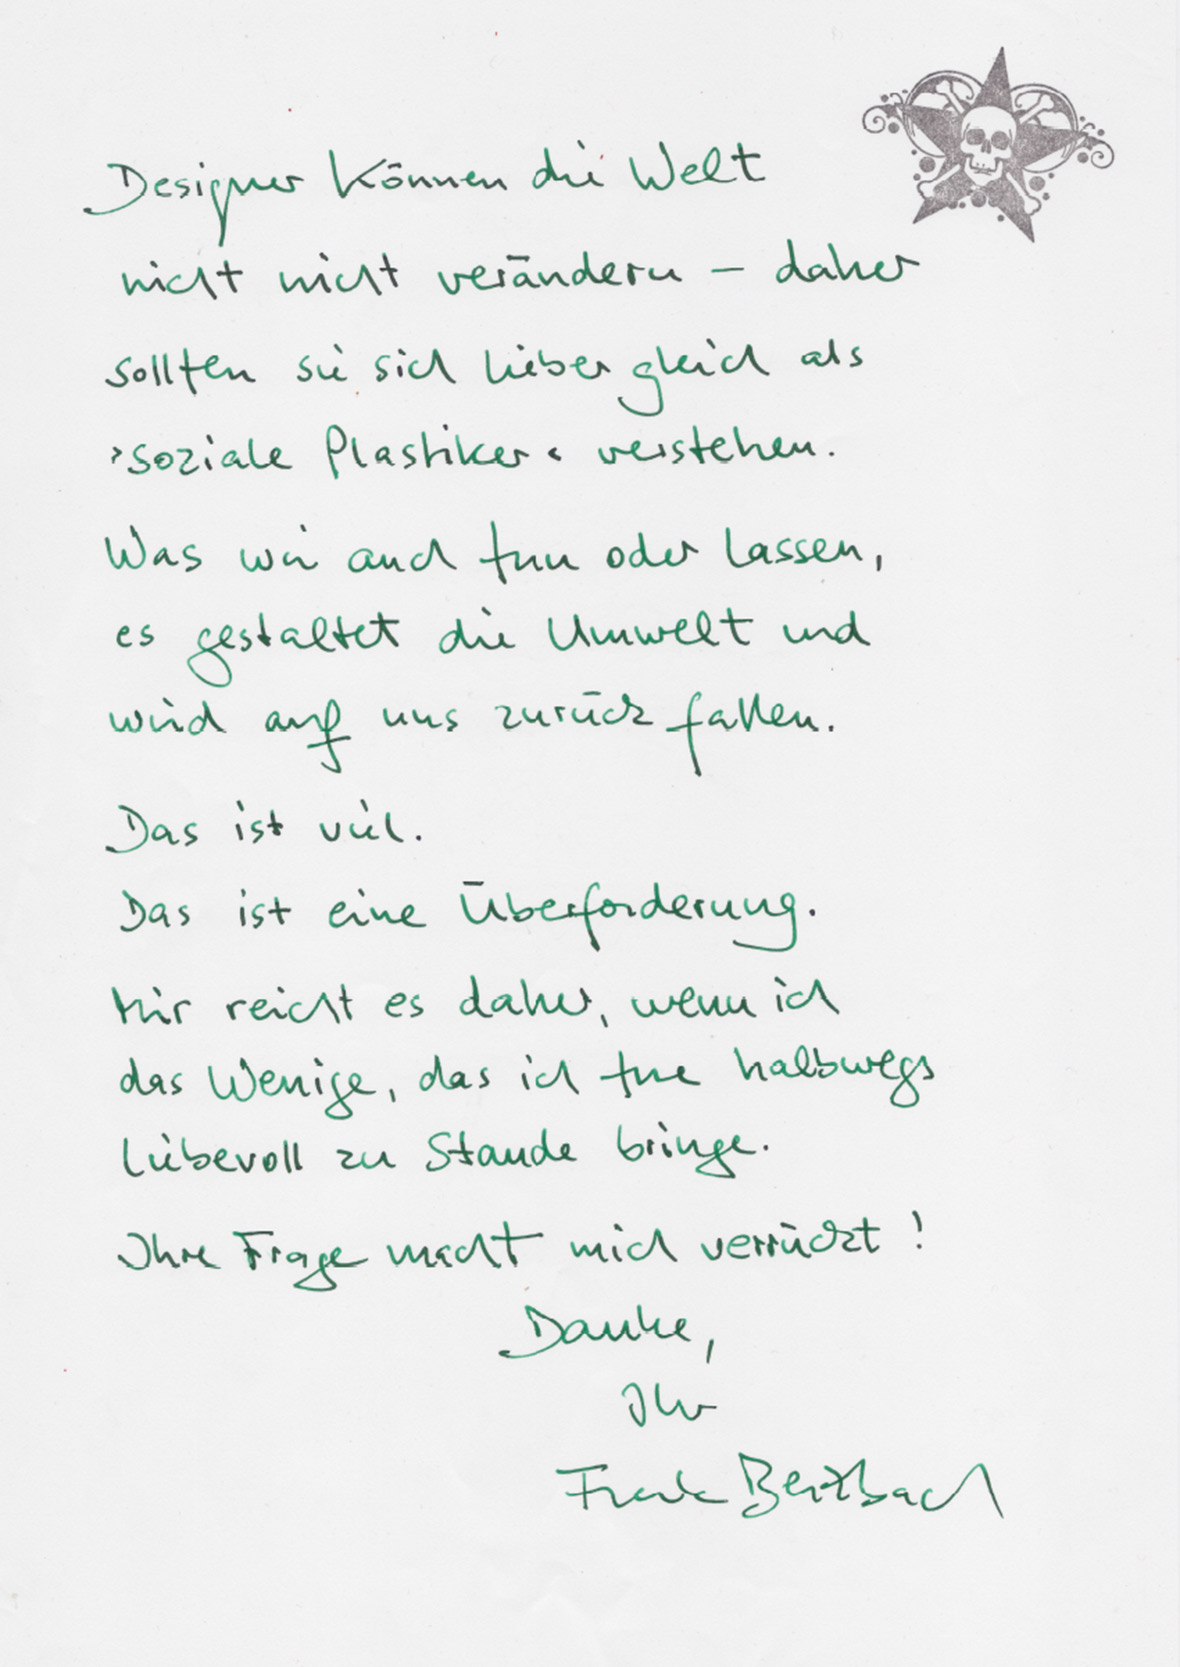 Designer können die Welt
nicht nicht verändern – daher
sollten sie sich lieber gleich als
›soziale Plastiker‹ verstehen.
Was wir auch tun oder lassen,
es gestaltet die Umwelt und
wird auf uns zurück fallen.
Das ist viel.
Das ist eine Überforderung.
Mir reicht es daher, wenn ich
das Wenige, das ich tue halbwegs
liebevoll zu Stande bringe.
Ihre Frage macht mich verrückt!
Danke,
Ihr
Frank Berzbach